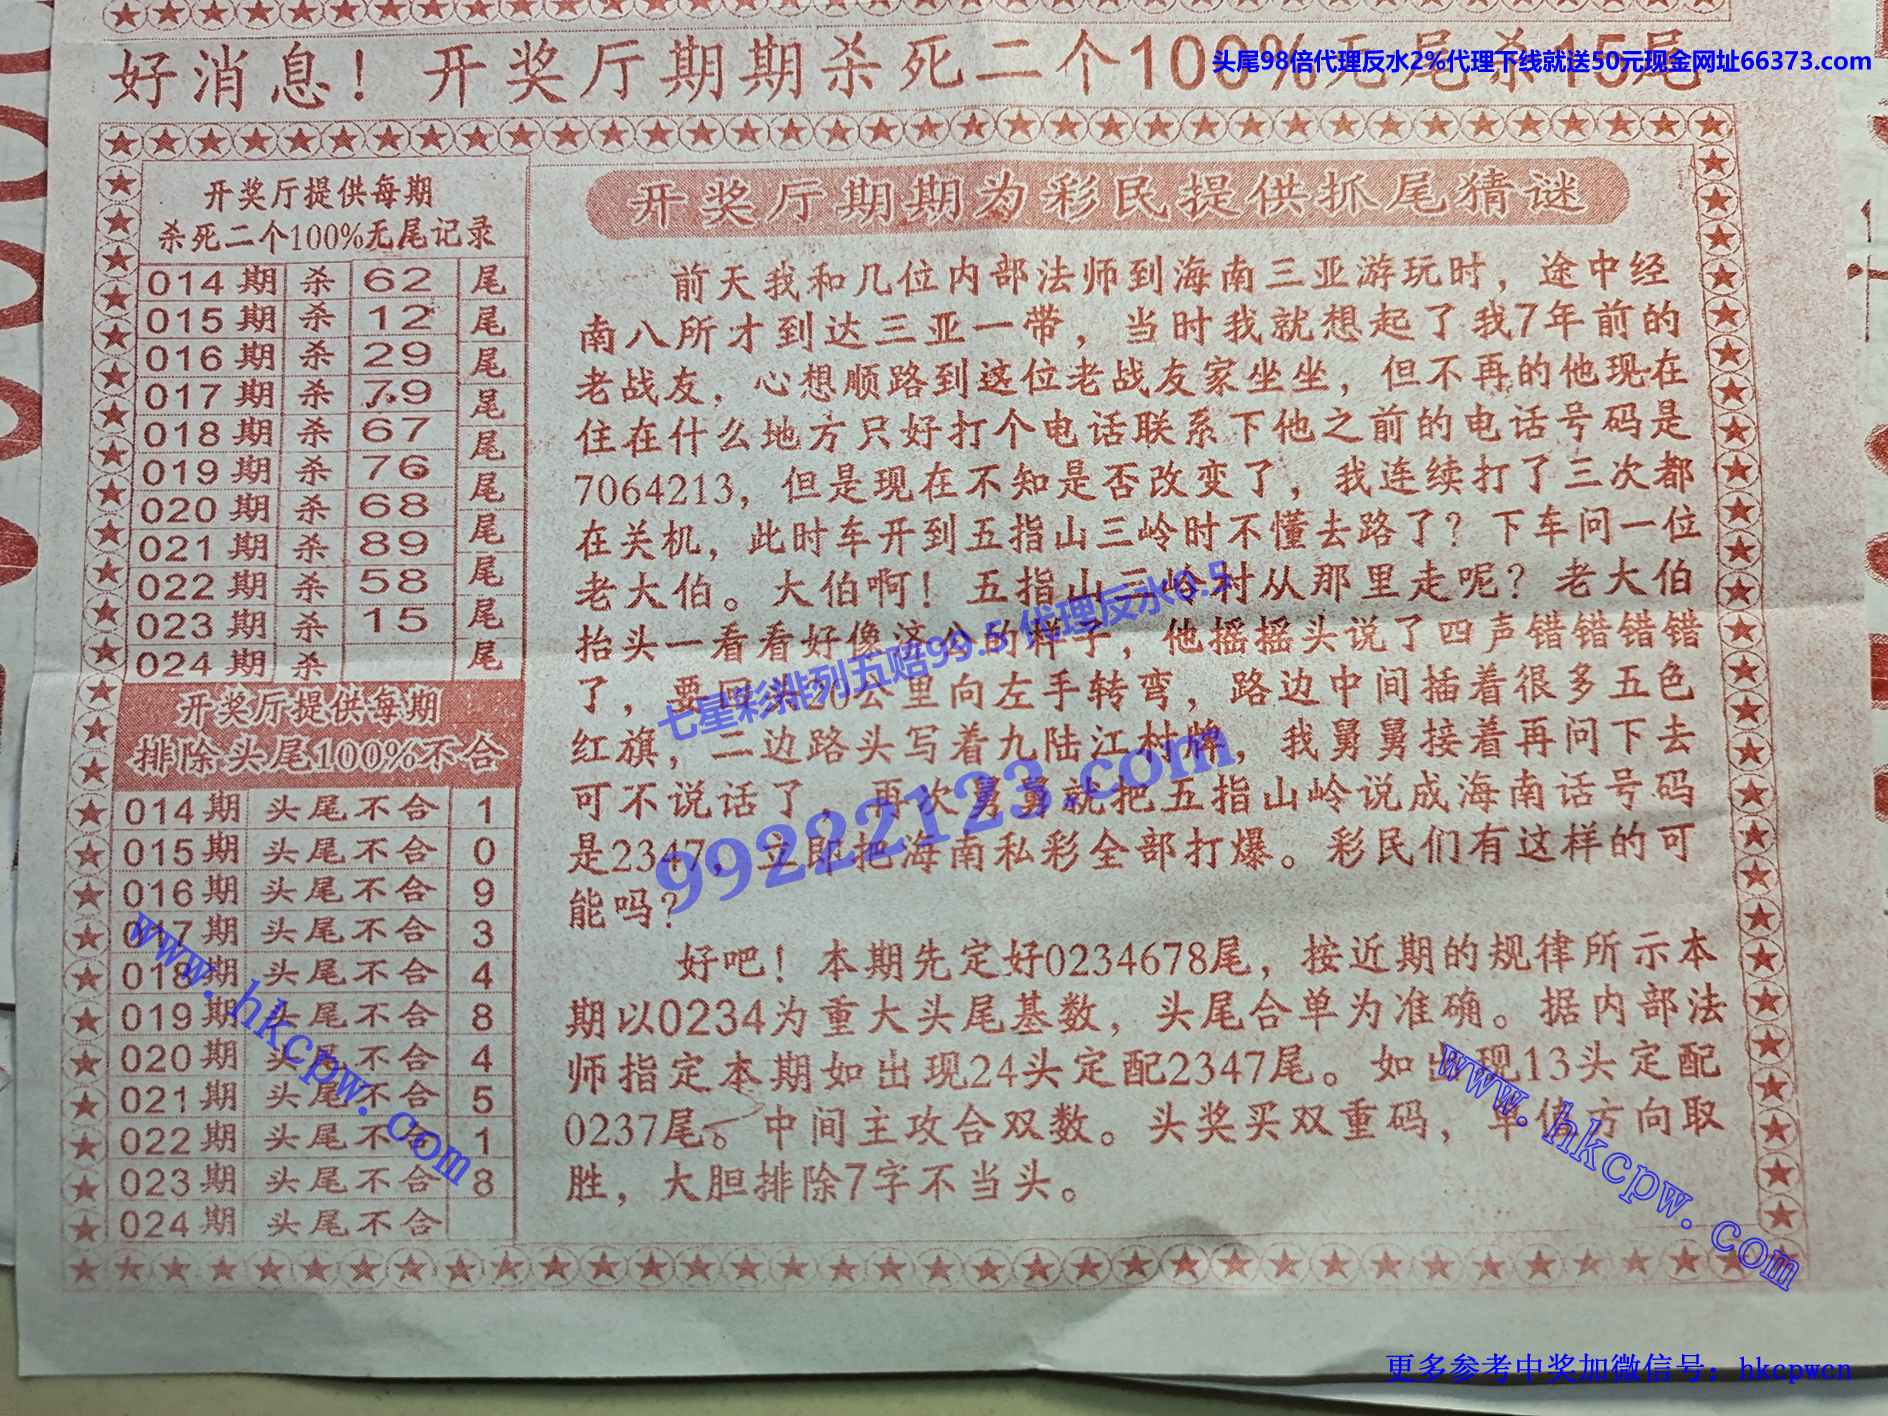 头尾98倍代理反水2%代理下线就送50元现金网址66373.com
好消息！开奖厅期期杀死二个100%无尾杀15尾
开奖厅提供每期
杀死二个100%无尾记录
014期 杀 62 尾
015期 杀 12 尾
016期 杀 29 尾
017期 杀 79 尾
018期 杀 67 尾
019期 杀 76 尾
020期 杀 68 尾
021期 杀 89 尾
022期 杀 58 尾
023期 杀 15 尾
024期 杀 尾
开奖厅提供每期
排除头尾100%不合
014期 头尾不合 1
015期 头尾不合 0
016期 头尾不合 9
017期 头尾不合 3
018期 头尾不合 4
019期 头尾不合 8
020期 头尾不合 4
021期 头尾不合 5
022期 头尾不合 1
023期 头尾不合 8
024期 头尾不合
开奖厅期期为彩民提供抓尾猜谜
前天我和几位内部法师到海南三亚游玩时，途中经
南八所才到达三亚一带，当时我就想起了我7年前的
老战友，心想顺路到这位老战友家坐坐，但不再的他现在
住在什么地方只好打个电话联系下他之前的电话号码是
7064213，但是现在不知是否改变了，我连续打了三次都
在关机，此时车开到五指山三岭时不懂去路了？下车问一位
老大伯。大伯啊！五指山三岭村从那里走呢？老大伯
抬头一看看好像济公的样子，他摇摇头说了四声错错错错
了，要回头20公里向左手转弯，路边中间插着很多五色
红旗，二边路头写着九陆江村牌，我舅舅接着再问下去
可不说话了，再次舅舅就把五指山岭说成海南话号码
是2347，立即把海南私彩全部打爆。彩民们有这样的可
能吗？
好吧！本期先定好0234678尾，按近期的规律所示本
期以0234为重大头尾基数，头尾合单为准确。据内部法
师指定本期如出现24头定配2347尾。如出现13头定配
0237尾。中间主攻合双数。头奖买双重码，单值方向取
胜，大胆排除7字不当头。
七星彩排列五赔99.5代理反水0.5
99222123.com
www.hkcpw.com
www.hkcpw.com
更多参考中奖加微信号：hkcpwcn